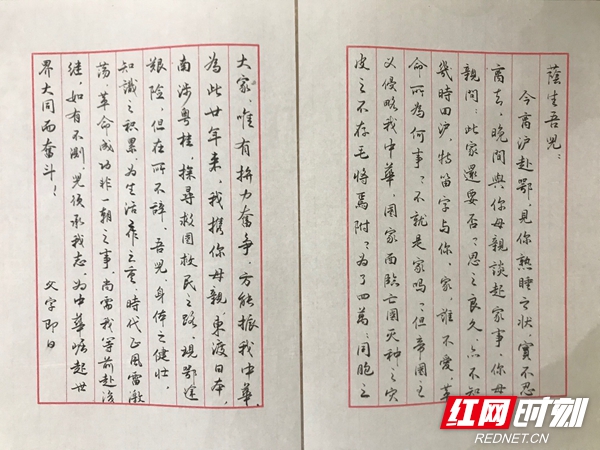 蔭生吾兒：
今离沪赴鄂，見你熟睡之状，實不忍
离去，晚間與你母親談起家事，你母
親問：此家還要否？思之良久，亦不知
幾時回沪，特留字与你，家，誰不爱，革
命所為何事？不就是家嗎？但帝國主
义侵略我中華，國家面臨亡國灭种之灾
皮之不存毛將焉附？為了四萬万同胞之
大家，唯有拚力奮争，方能振我中華
為此廿年来，我携你母親，東渡日本，
南涉粤桂，探尋救国救民之路，視鄂途
艱险，但在所不辞，吾兒身体之健壮，
知識之积累，为生活之重，時代正風雷激
荡，革命成功非一朝之事，尚需我等前赴後
继，如有不測，兒須承我志，为中華崛起世
界大同而奋斗！
父字即日
红网时刻
REDNET.CN